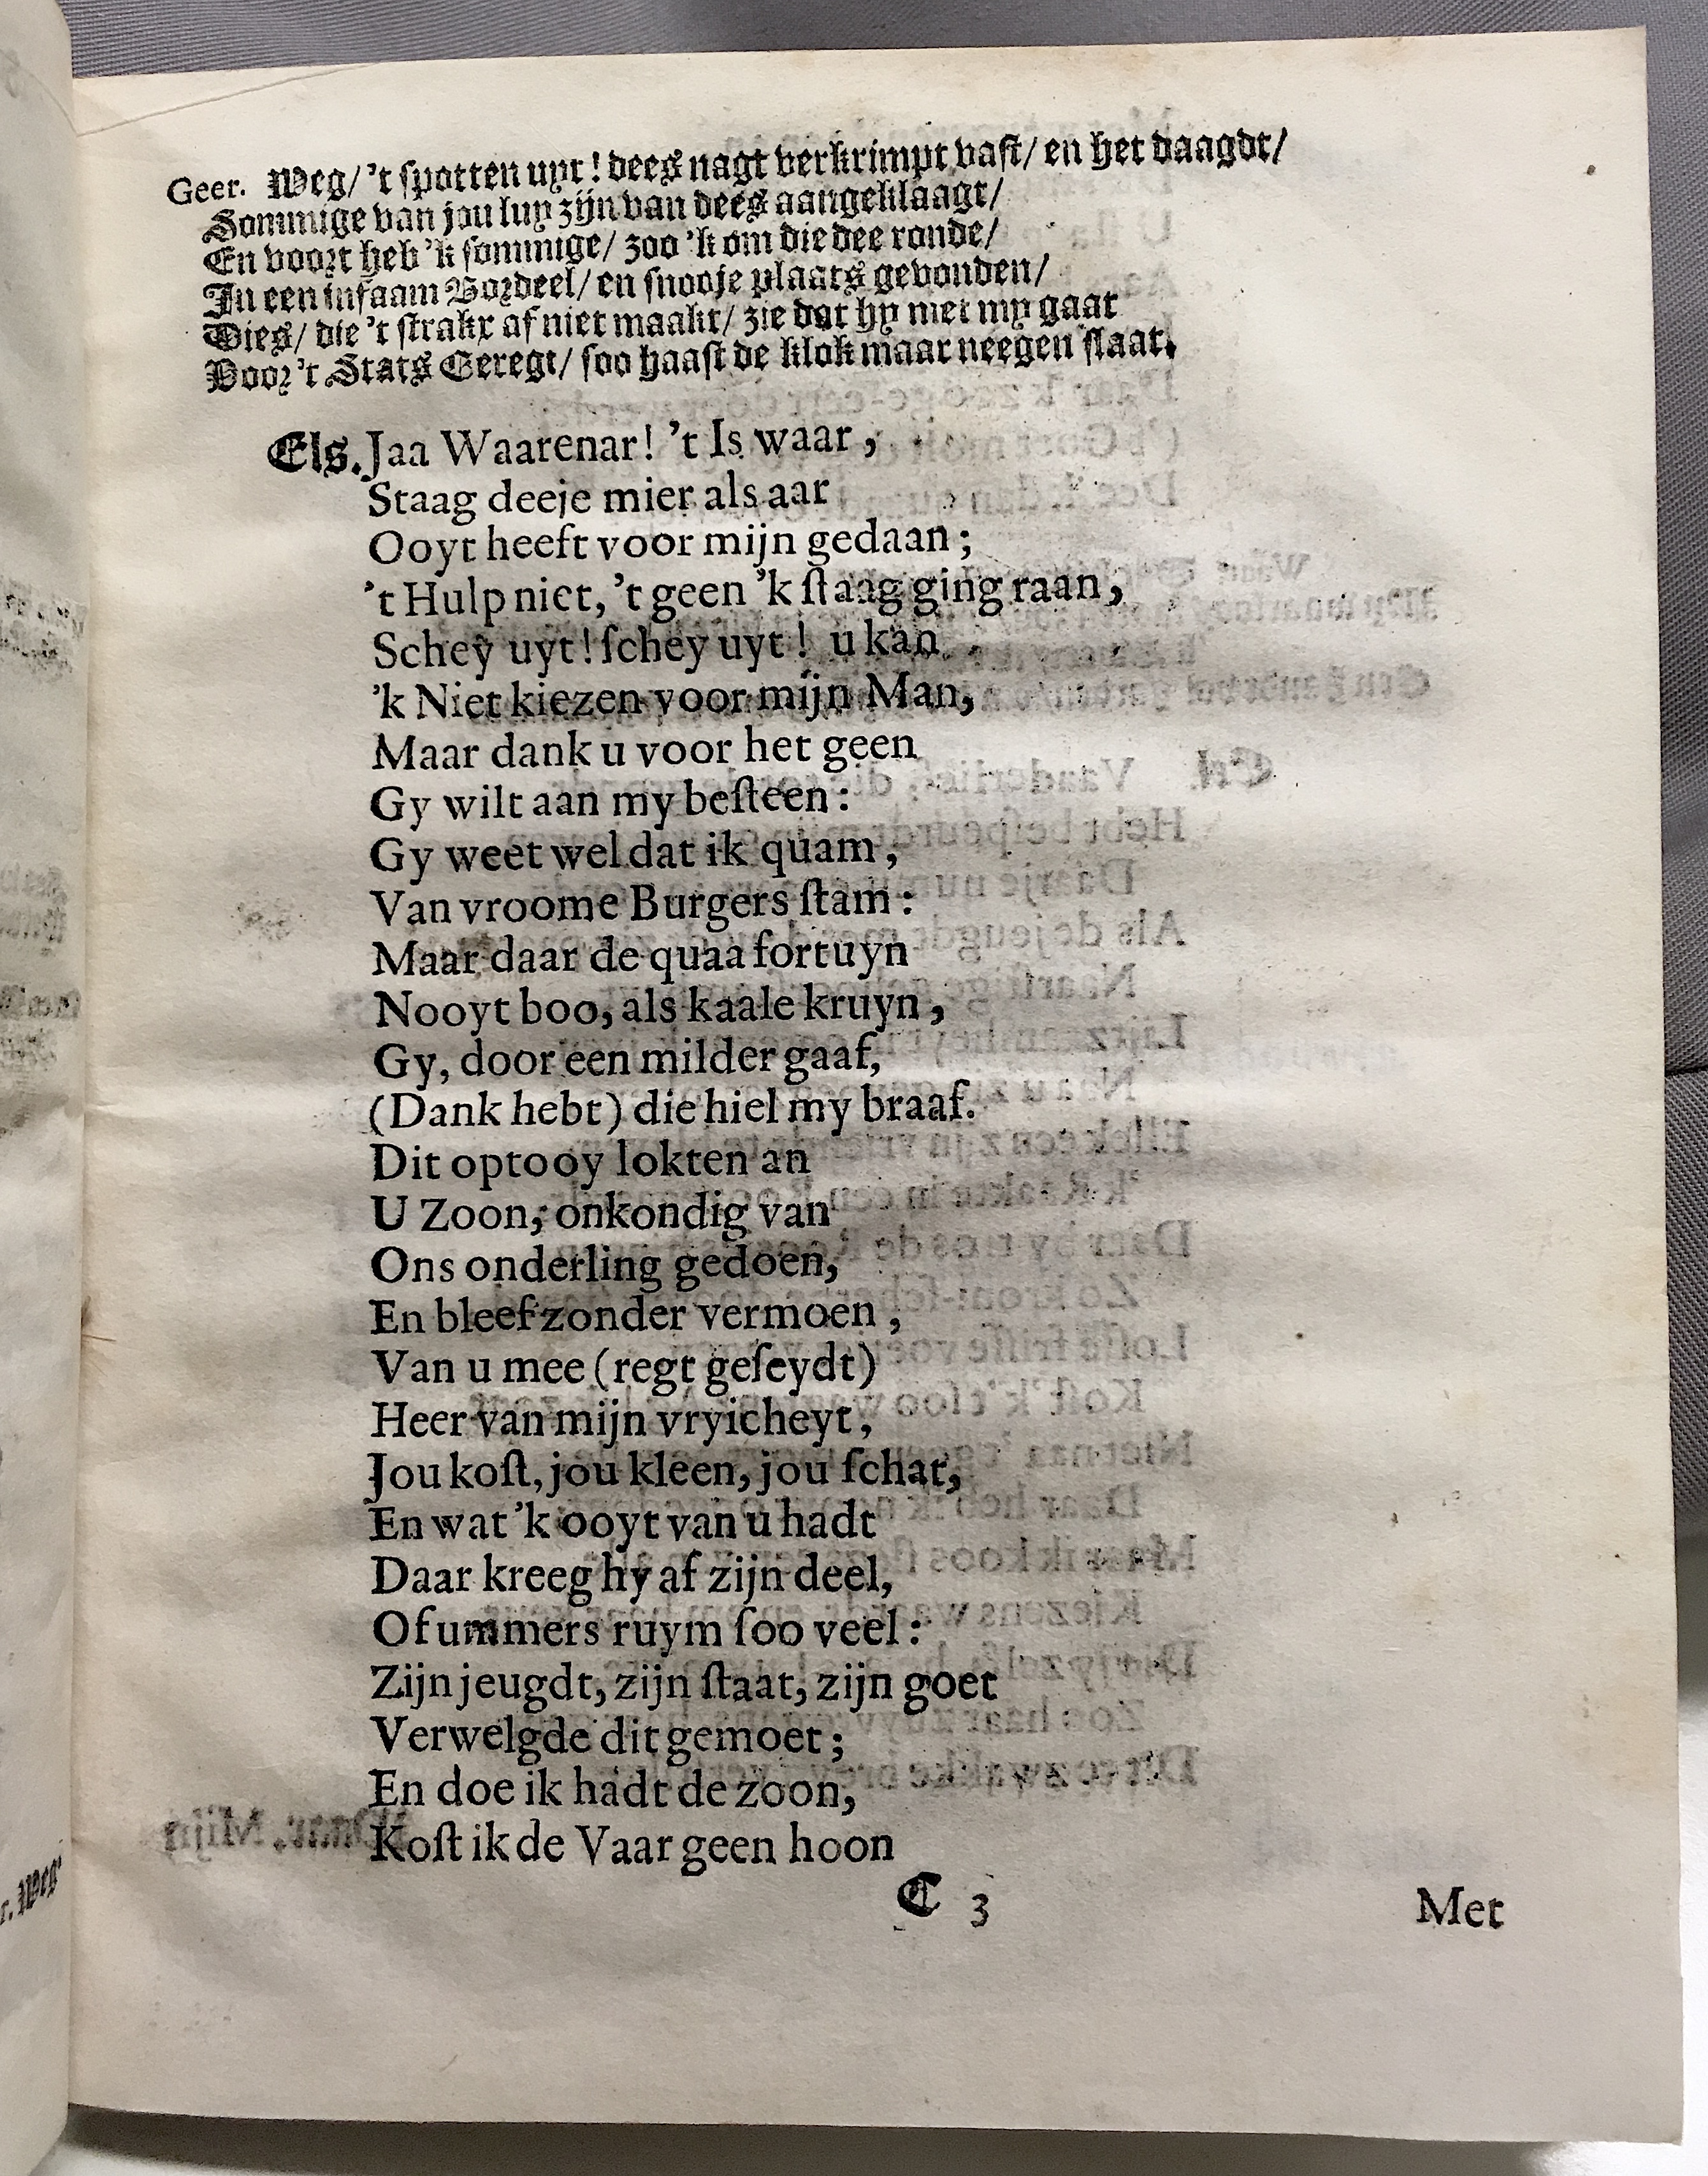 Geer. Weg/ 't spotten uyt! dees nagt verkrimpt vaſt/ en het daagdt/
Sommige van jou luy zijn van dees aangeklaagt/
En voort heb 'k sommige/ zoo 'k om die dee ronde/
In een infaam Bordeel/ en snooje plaats gevonden/
Dies/ die 't ſtrakx af niet maakt/ zie dat hy met my gaat
Voor 't Stats Geregt/ ſoo haaſt de klok maar neegen ſlaat.
Els. Jaa Waarenar! 't Is waar,
Staag deeje mier als aar
Ooyt heeft voor mijn gedaan;
't Hulp niet, 't geen 'k ſtaag ging raan,
Schey uyt! ſchey uyt! u kan
'k Niet kiezen voor mijn Man,
Maar dank u voor het geen
Gy wilt aan my beſteen:
Gy weet wel dat ik quam,
Van vroome Burgers ſtam:
Maar daar de quaa fortuyn
Nooyt boo, als kaale kruyn,
Gy, door een milder gaaf,
(Dank hebt) die hiel my braaf.
Dit optooy lokten an
U Zoon, onkondig van
Ons onderling gedoen,
En bleef zonder vermoen,
Van u mee (regt geſeydt)
Heer van mijn vryicheyt,
Jou koſt, jou kleen, jou ſchat,
En wat 'k ooyt van u hadt
Daar kreeg hy af zijn deel,
Of ummers ruym ſoo veel:
Zijn jeugdt, zijn ſtaat, zijn goet
Verwelgde dit gemoet;
En doe ik hadt de zoon,
Koſt ik de Vaar geen hoon
C 3 Met